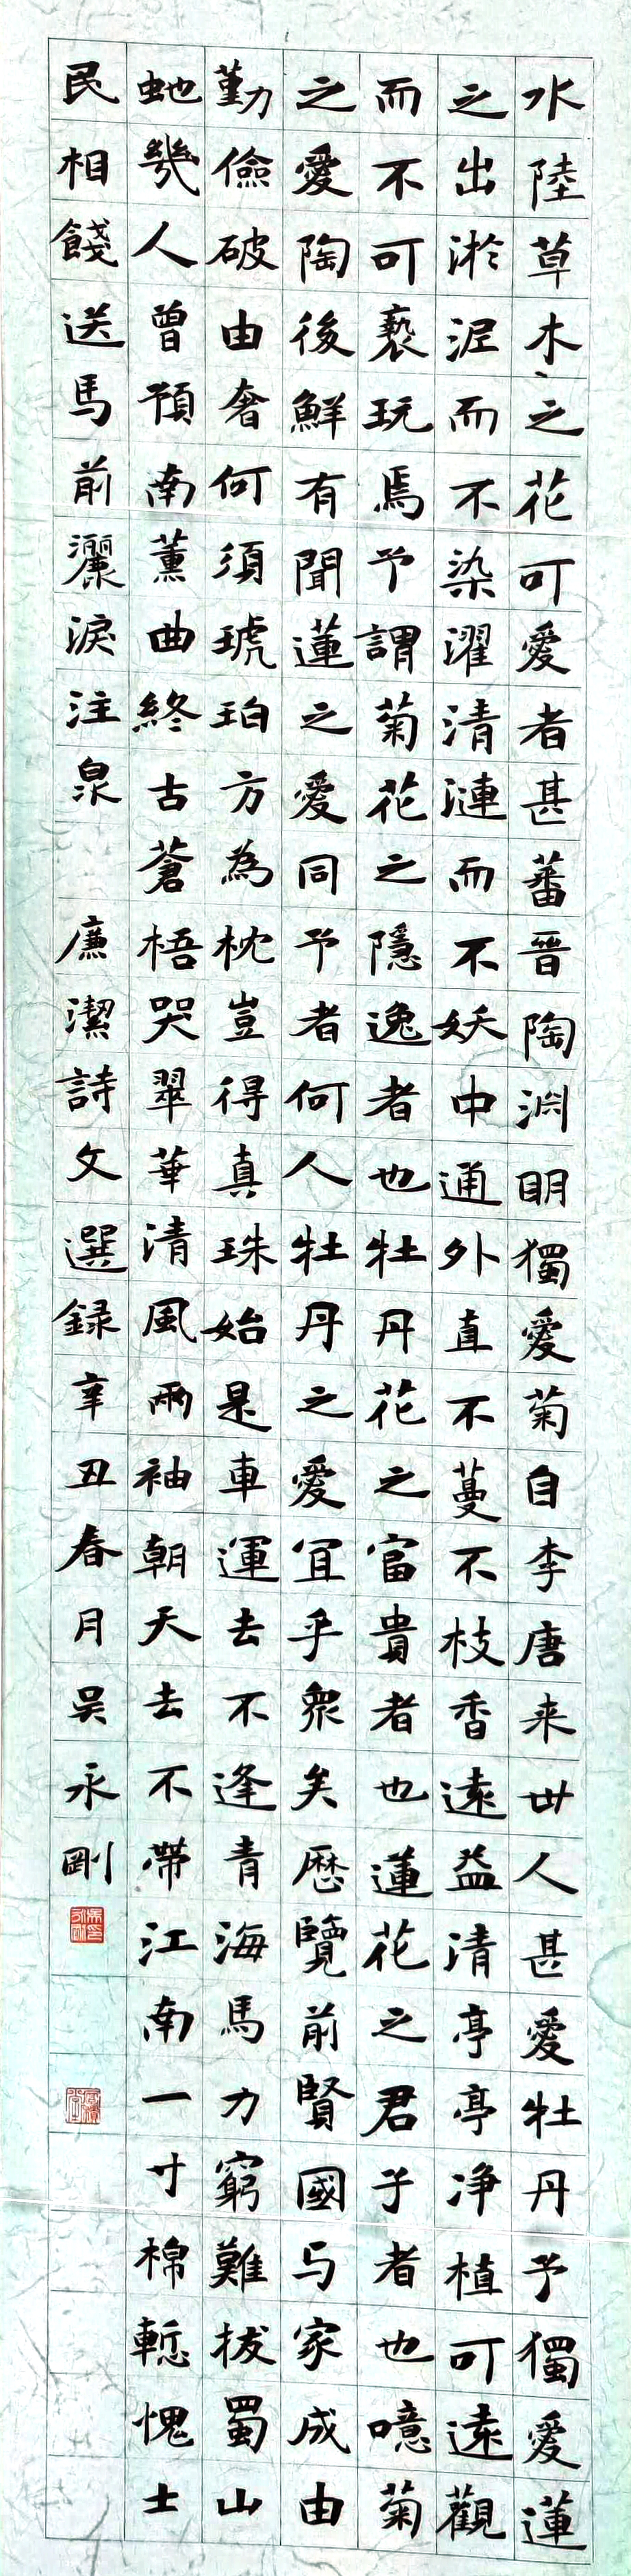 水陸草木之花可愛者甚蕃晉陶淵明獨愛菊自李唐来世人甚愛牡丹予獨愛蓮
之出淤泥而不染濯清漣而不妖中通外直不蔓不枝香遠益清亭亭净植可遠觀
而不可褻玩焉予謂菊花之隱逸者也牡丹花之富貴者也蓮花之君子者也噫菊
之愛陶後鮮有聞蓮之愛同予者何人牡丹之愛宜乎衆矣歷覽前賢國与家成由
勤儉破由奢何須琥珀方為枕豈得真珠始是車運去不逢青海馬力窮難拔蜀山
虵幾人曾預南薰曲終古蒼梧哭翠華清風兩袖朝天去不帶江南一寸棉慙愧士
民相餞送馬前灑淚注泉 廉潔詩文選録辛丑春月吴永剛